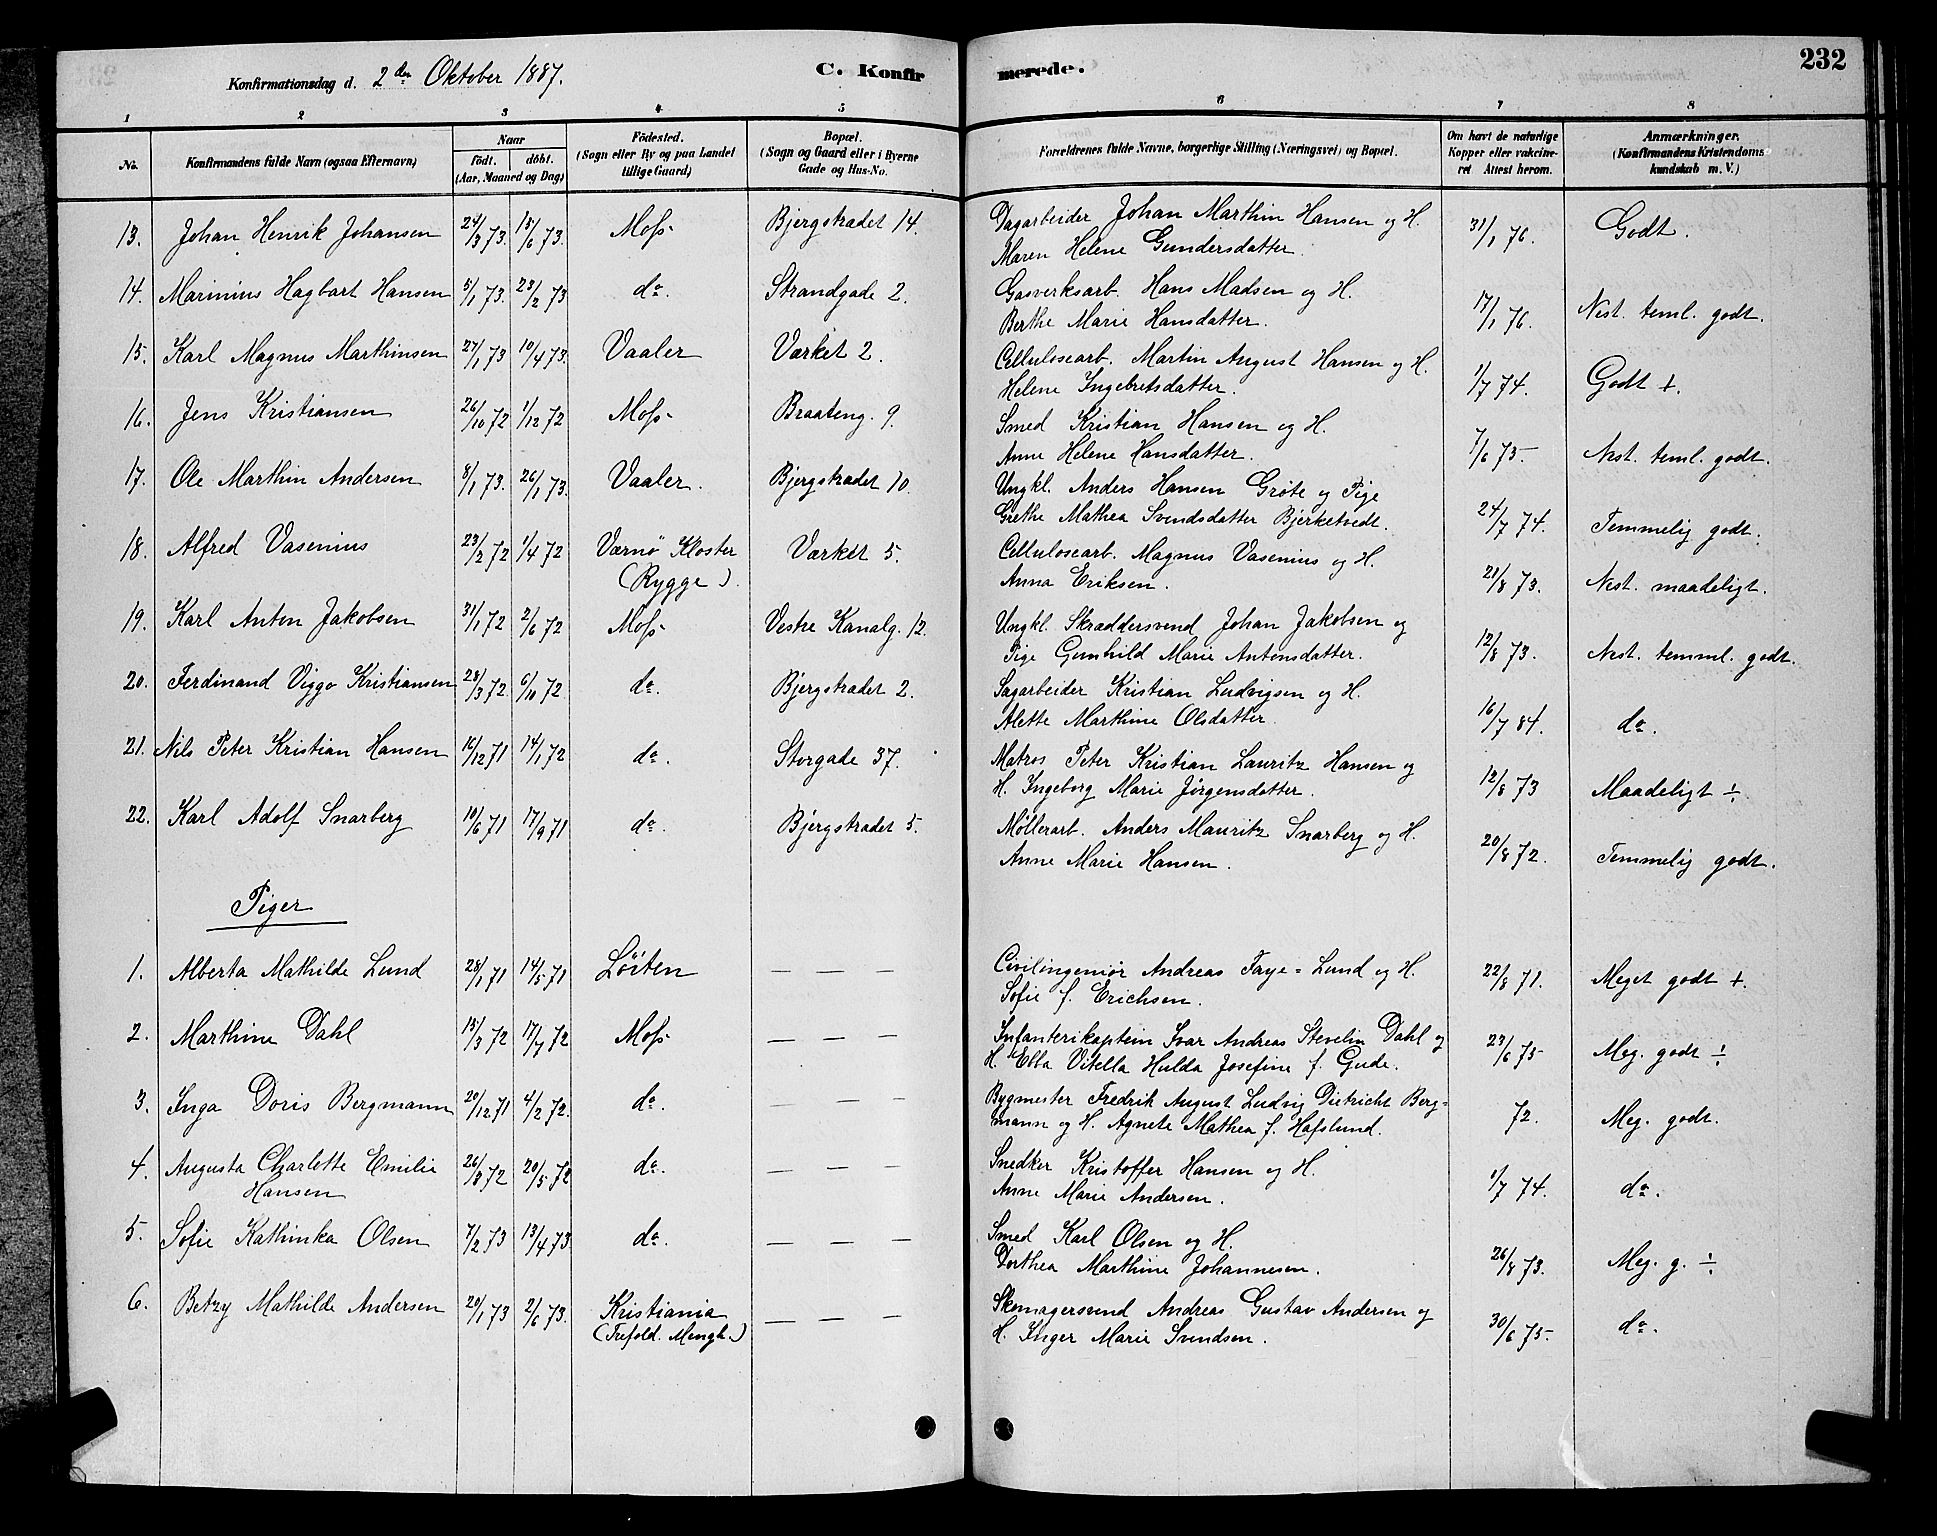 Konfirmationsdag d. 2den Oktober 1887. C. Konfirmerede. 232
1 2 3 4 5 6 7 8
No. Konfirmandens fulde Navn (ogsaa Efternavn) Naar födt. döbt. (Aar, Maaned og Dag) Födested. (Sogn eller By og paa Landet tillige Gaard) Bopæl. (Sogn og Gaard eller i Byerne Gade og Hus-No. Forældrenes fulde Navne, borgerlige Stilling (Næringsvei) og Bopæl. Om havt de naturlige Kopper eller vakcineret Attest herom. Anmærkninger. (Konfirmandens Kristendomskundskab m. V.)
13. Johan Henrik Johansen 24/3 73. 15/6 73. Moss Bjergstrædet 14. Dagarbeider Johan Marthin Hansen og H. 31/1 76. Godt.
Maren Helene Gundersdatter.
14. Marinius Hagbart Hansen 5/1 73. 23/2 73 do. Strandgade 2. Gasverksarb. Hans Madsen og H. 17/1 76. Nest. teml. godt.
Berthe Marie Hansdatter.
15. Karl Magnus Marthinsen 27/1 73 10/4 73. Vaaler Værket 2. Cellulosearb. Martin August Hansen og H. 1/7 74. Godt +.
Helene Ingebretsdatter.
16. Jens Kristiansen 26/10 72 1/12 72 Moss Braateng. 9. Smed Kristian Hansen og H. 7/6 75. Nest. teml. godt.
Anne Helene Hansdatter.
17. Ole Marthin Andersen 8/1 73. 26/1 73. Vaaler. Bjergstrædet 10. Ungkl. Anders Hansen Grøte og Pige 24/7 74. Temmelig godt.
Grethe Mathea Svendsdatter Bjerketvedt.
18. Alfred Vasenius 23/2 72 1/4 72 Værnø Kloster Værket 5. Cellulosearb. Magnus Vasenius og H. 21/8 73. Nest. maadeligt.
(Rygge). Anna Eriksen.
19. Karl Anton Jakobsen 31/1 72 2/6 72 Moss Vestre Kanalg. 12. Ungkl. Skræddersvend Johan Jakobsen og 12/8 73. Nest. temml. godt.
Pige Gunhild Marie Antonsdatter.
20. Ferdinand Viggo Kristiansen 28/3 72. 6/10 72. do. Bjergstrædet 2. Sagarbeider Kristian Ludvigsen og H. 16/7 84. do.
Alette Marthine Olsdatter.
21. Nils Peter Kristian Hansen 16/12 71 14/1 72 do. Storgade 37. Matros Peter Kristian Lauritz Hansen og 12/8 73 Maadeligt ÷.
H. Ingeborg Marie Jørgensdatter.
22. Karl Adolf Snarberg 10/6 71 17/9 71 do. Bjergstrædet 5. Møllerarb. Anders Mauritz Snarberg og H. 20/8 72. Temmelig godt.
Anne Marie Hansen.
Piger
1. Alberta Mathilde Lund 28/1 71 14/5 71 Löiten — — — Civilingeniør Andreas Faye=Lund og H. 22/8 71. Meget godt +.
Sofie f. Erichsen.
2. Marthine Dahl 13/3 72 17/7 72 Moss — — — Infanterikaptein Ivar Andreas Stevelin Dahl og 23/6 75 Meg. godt ÷
H. Ebba Vitella Hulda Josefine f. Gude.
3. Inga Doris Bergmann 20/12 71 4/2 72. do. — — — Bygmester Fredrik August Ludvig Dietricht Berg= 72. Meg. godt.
mann og H. Agnete Mathea f. Hafslund.
4. Augusta Charlotte Emilie 26/3 72 20/5 72 do. — — — Snedker Kristoffer Hansen og H. 1/7 74. do.
Hansen Anne Marie Andersen.
5. Sofie Kathinka Olsen 7/2 73 13/4 73 do. — — — Smed Karl Olsen og H. 26/8 73. Meg. g. ÷
Dorthea Marthine Johannesen.
6. Betzy Mathilde Andersen 20/1 73 2/6 73. Kristiania — — — Skomagersvend Andreas Gustav Andersen og 30/6 75. do.
(Trefold. Mengh.) H. Inger Marie Svendsen.